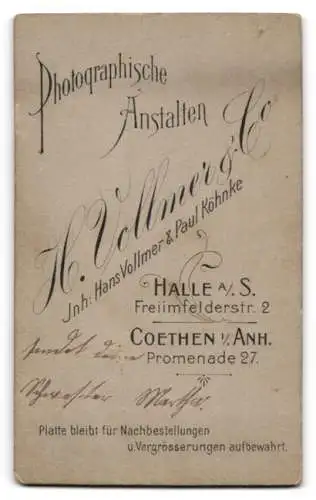 Photographische
Anstalten
H. Vollmer & Co
Jnh: Hans Vollmer & Paul Köhnke
HALLE A/. S.
Freiimfelderstr. 2
COETHEN i/. ANH.
Promenade 27.
sendet deine
Schwester Martha.
Platte bleibt für Nachbestellungen
u. Vergrösserungen aufbewahrt.